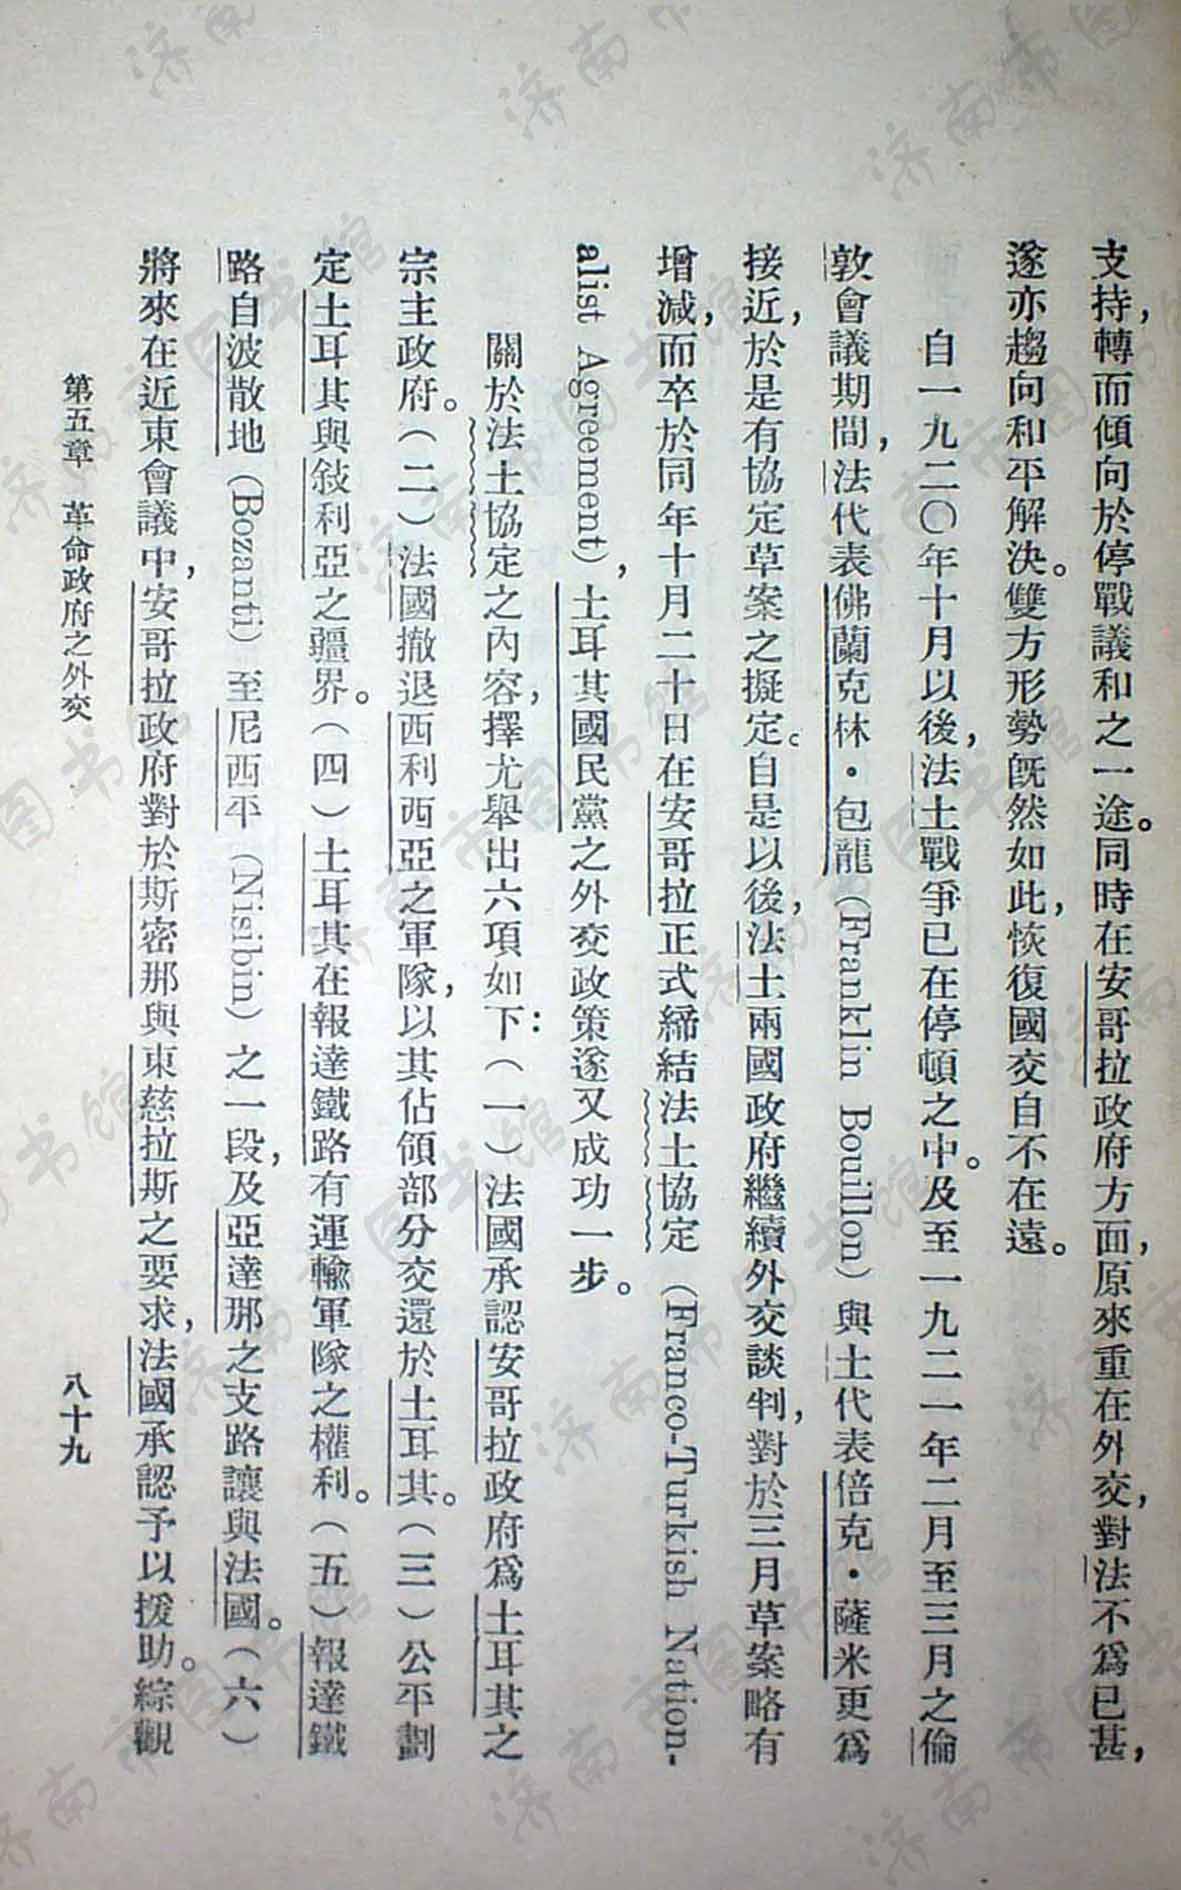 支持，轉而傾向於停戰議和之一途。同時在安哥拉政府方面，原來重在外交，對法不爲已甚，
遂亦趨向和平解決。雙方形勢旣然如此，恢復國交自不在遠。
自一九二〇年十月以後，法土戰爭已在停頓之中。及至一九二一年二月至三月之倫
敦會議期間，法代表佛蘭克林·包龍（Franklin Bouillon）與土代表倍克·薩米更爲
接近，於是有協定草案之擬定。自是以後，法土兩國政府繼續外交談判，對於三月草案略有
增減，而卒於同年十月二十日在安哥拉正式締結法土協定（Franco-Turkish Nation-
alist Agreement），土耳其國民黨之外交政策遂又成功一步。
關於法土協定之內容，擇尤舉出六項如下：（一）法國承認安哥拉政府爲土耳其之
宗主政府。（二）法國撤退西利西亞之軍隊，以其佔領部分交還於土耳其。（三）公平劃
定土耳其與敍利亞之疆界。（四）土耳其在報達鐵路有運輸軍隊之權利。（五）報達鐵
路自波散地（Bozanti）至尼西平（Nisibin）之一段，及亞達那之支路讓與法國。（六）
將來在近東會議中，安哥拉政府對於斯密那與東慈拉斯之要求，法國承認予以援助。綜觀
第五章 革命政府之外交
八十九
济南市图书馆